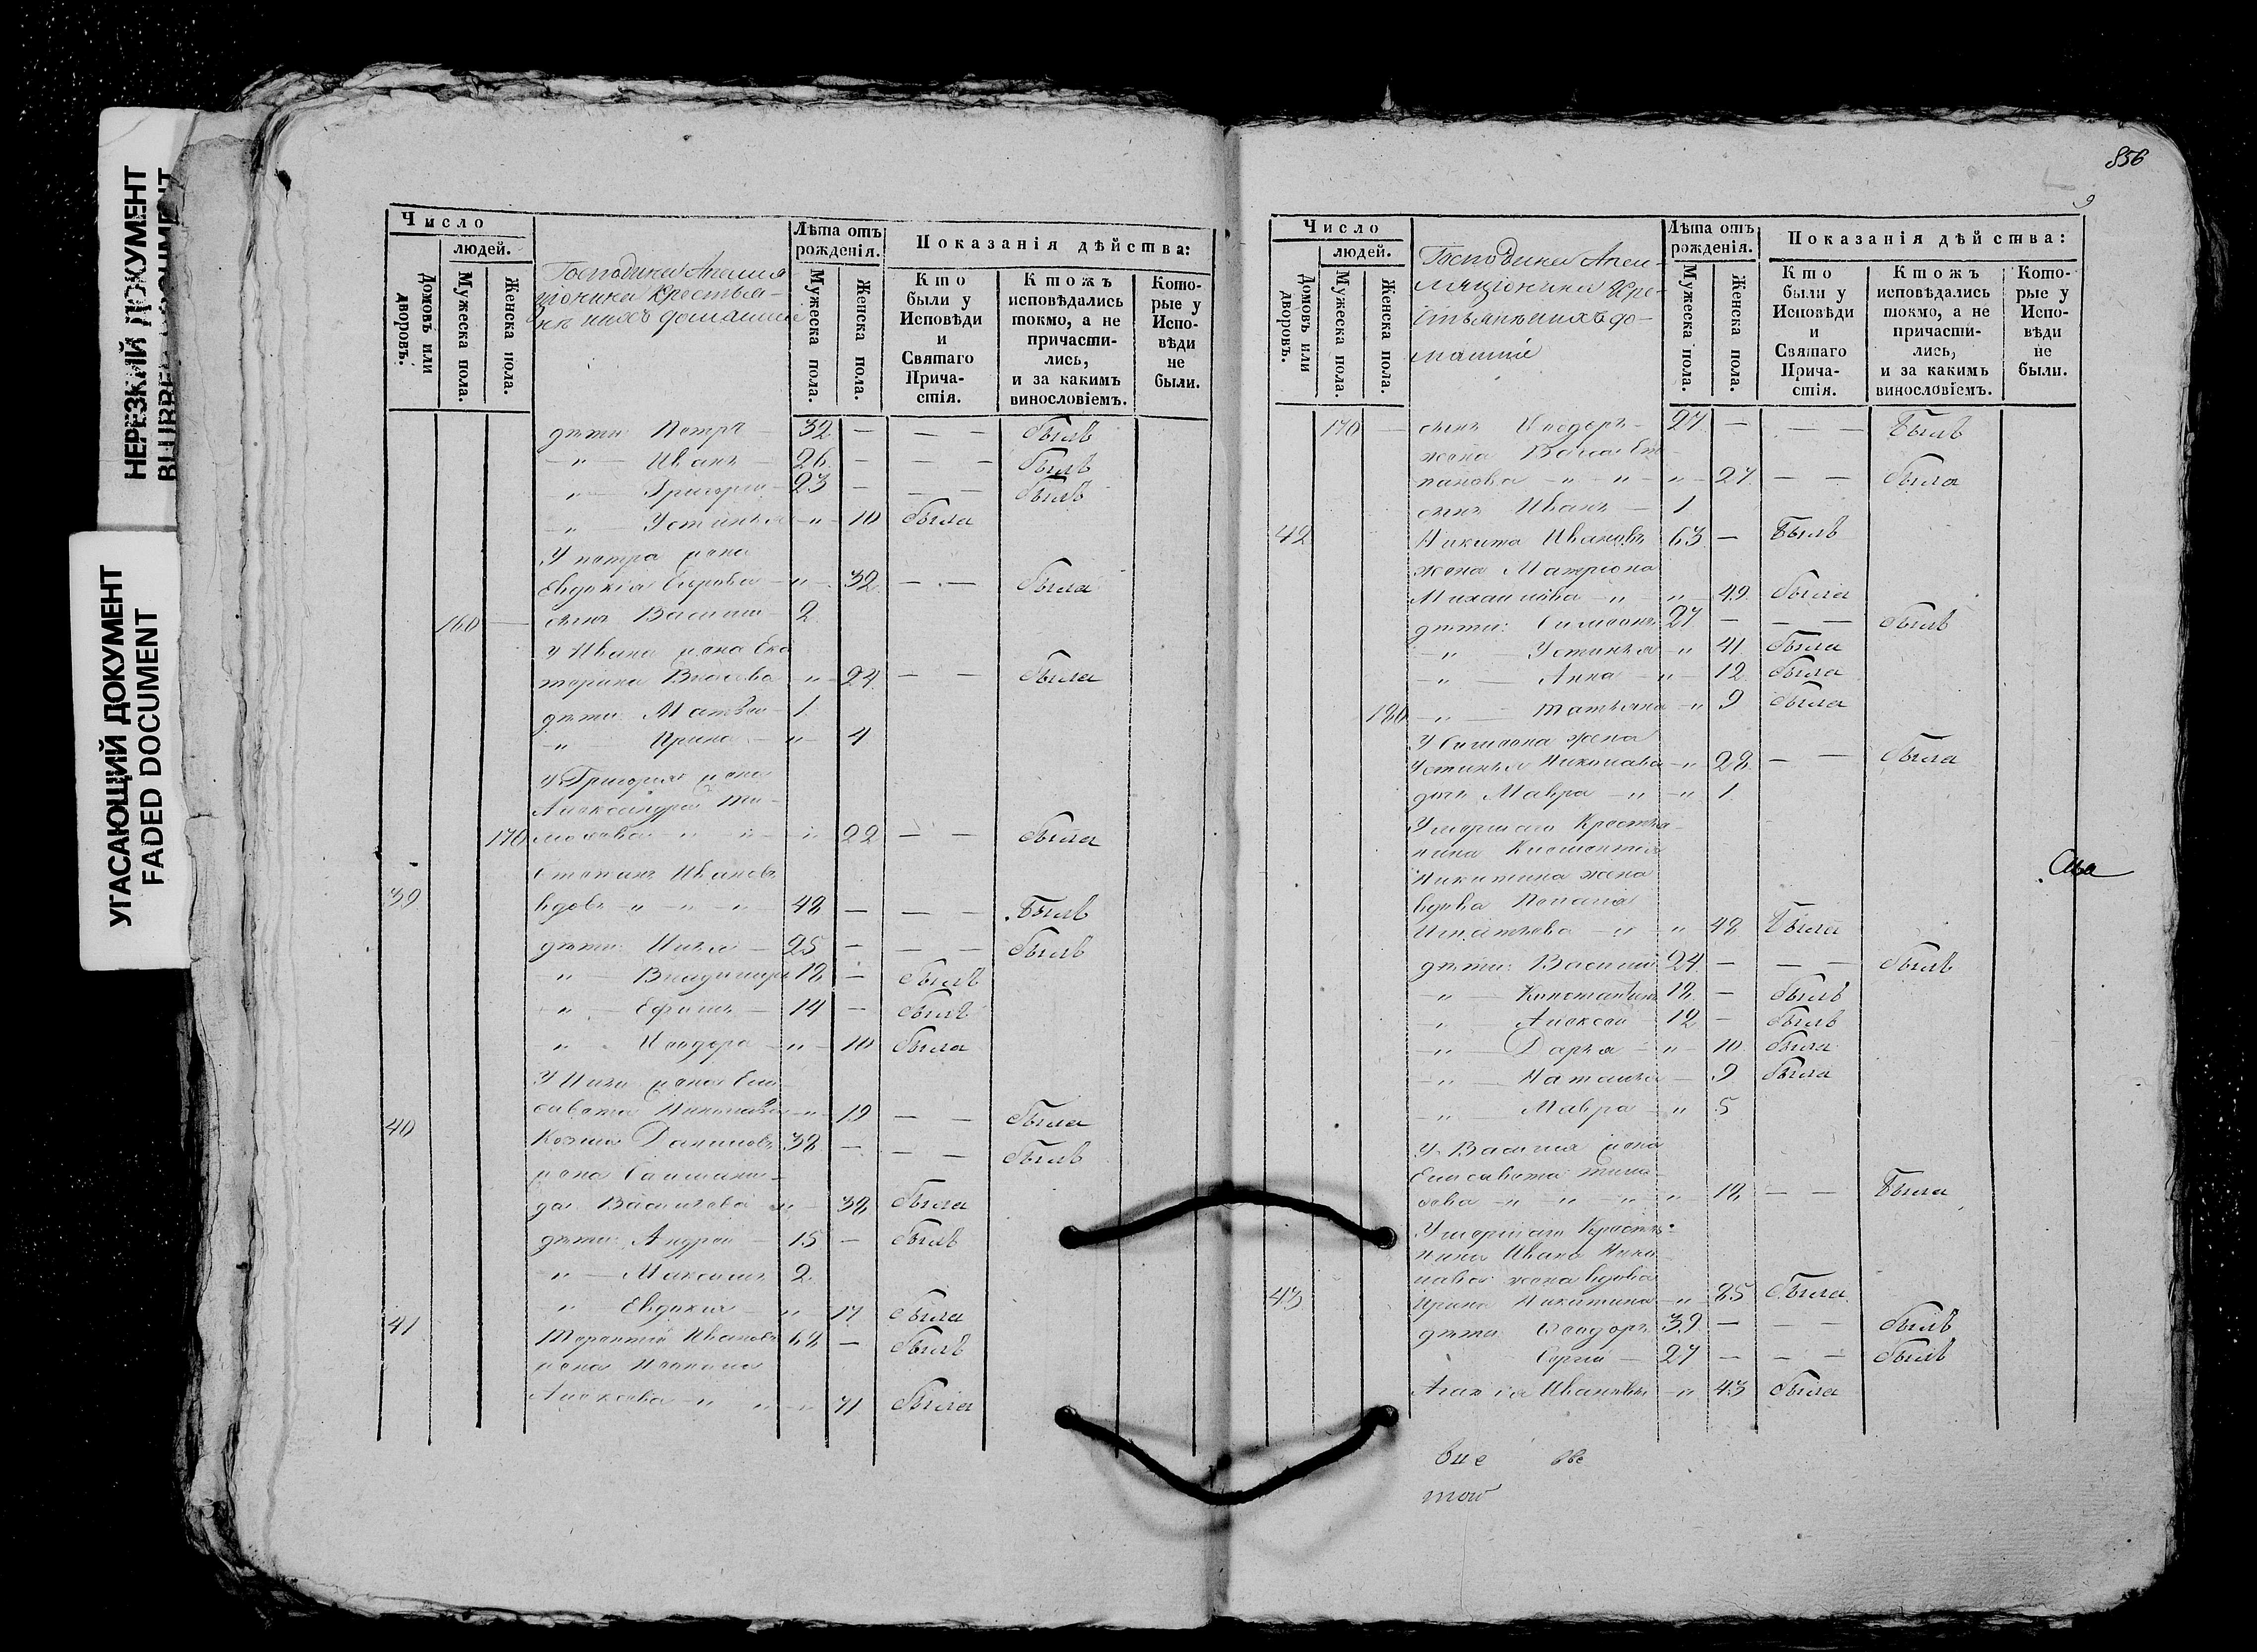 НЕРЕЗКИЙ ДОКУМЕНТ
BLURRED DOCUMENT
УГАСАЮЩИЙ ДОКУМЕНТ
FADED DOCUMENT
Число
людей.
Домовъ или дворовъ.
Мужеска пола.
Женска пола.
крестья-
нѣ ихъ домашніе
Лѣта отъ рожденія.
Мужеска пола.
Женска пола.
Показанія дѣйства:
Кто были у Исповѣди и Святаго Прича-стія.
Ктожъ исповѣдались токмо, а не причасти-лись, и за какимъ винословіемъ.
Кото-рые у Испо-вѣди не были.
дѣти Петръ 32 — — — былъ
— " — Иванъ 26 — — — былъ
" — Григорій 23 — — — былъ
" — Устинья — " — 10 была
У Петра жена
Евдокія — " — 32 — — была
160 — сынъ Василій 2
У Ивана жена Ека
терина Власова — " — 24 — — была
дѣти: Матвѣй 1
— " — Ирина — " — 4
У Григорія жена
Александра Ти-
170 — " — 22 — — была
Степанъ Ивановъ
39 вдовъ — " — " — " — 48 — — — Былъ
дѣти: Илья — 25 — — — былъ
" — Владимиръ 18 — былъ
— " — Ефимъ — 14 — былъ
— " — Ѳеодора — " — 10 была
У Ильи жена Ели-
савета — " — 19 — — была
40 Козма Даниловъ 38 — — — былъ
жена
да Васильева — " — 38 была
дѣти: Андрей — 15 — былъ
— " — Максимъ 2
" — Евдокія — " — 17 была
41 Терентій Ивановъ 68 — былъ
жена
Алексѣева — " — " — 71 была
856
9
Число
людей.
Домовъ или дворовъ.
Мужеска пола.
Женска пола.
домашніе
Лѣта отъ рожденія.
Мужеска пола.
Женска пола.
Показанія дѣйства:
Кто были у Исповѣди и Святаго Прича-стія.
Ктожъ исповѣдались токмо, а не причасти-лись, и за какимъ винословіемъ.
Кото-рые у Испо-вѣди не были.
170 — сынъ Ѳеодоръ 27 — — — Былъ
жена Сте
панова — " — " — " — 27 — — была
сынъ Иванъ — 1
42 Никита Ивановъ 63 — Былъ
жена Матрона
Михайлова — " — " — 49 была
дѣти: Симеонъ 27 — — — былъ
— " — Устинья — " 41 была
— " — Анна — " — 12 была
180 — " — Татьяна — " 9 была
У Симеона жена
Устинья Николаева — " 28 — — была
дочь Мавра — " — " 1
Умершаго Крестья-
нина
Никитина жена
вдова Пелагія
Игнатьева — " — " 48 Была
дѣти: Василій 24 — — — былъ
— " — Константинъ 18 — былъ
— " — Алексѣй 12 — былъ
— " — Дарья — " — 10 была
— " — Наталья — 9 была
— " — Мавра — " 5
У Василія жена
Елисавета Тимо-
ѳеева — " — " — " — 18 — — Была
Умершаго Крестья-
нина Ивана
жена вдова
43 Ирина Никитина — " — 85 Была
дѣти: Ѳеодоръ 39 — — — былъ
Сергій — 27 — — — былъ
Ивановна — " 43 была